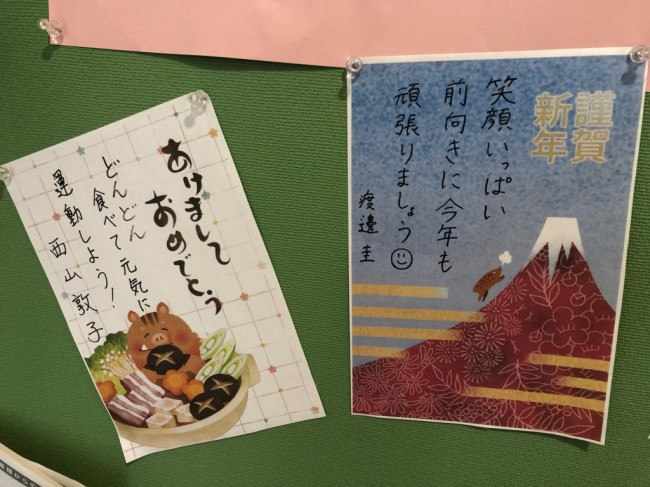 あけまして
おめでとう
どんどん
食べて元気に
運動しよう!
西山敦子
謹賀
新年
笑顔いっぱい
前向きに今年も
頑張りましょう
渡邊圭